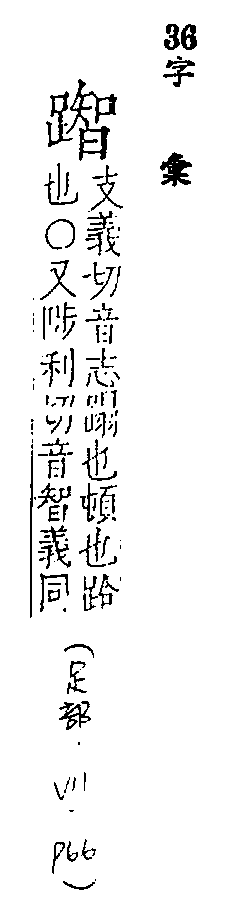 36
字彙
踟
支義切音志蹋也頓也跲
也○又陟利切音智義同
(足部.VII.P66)